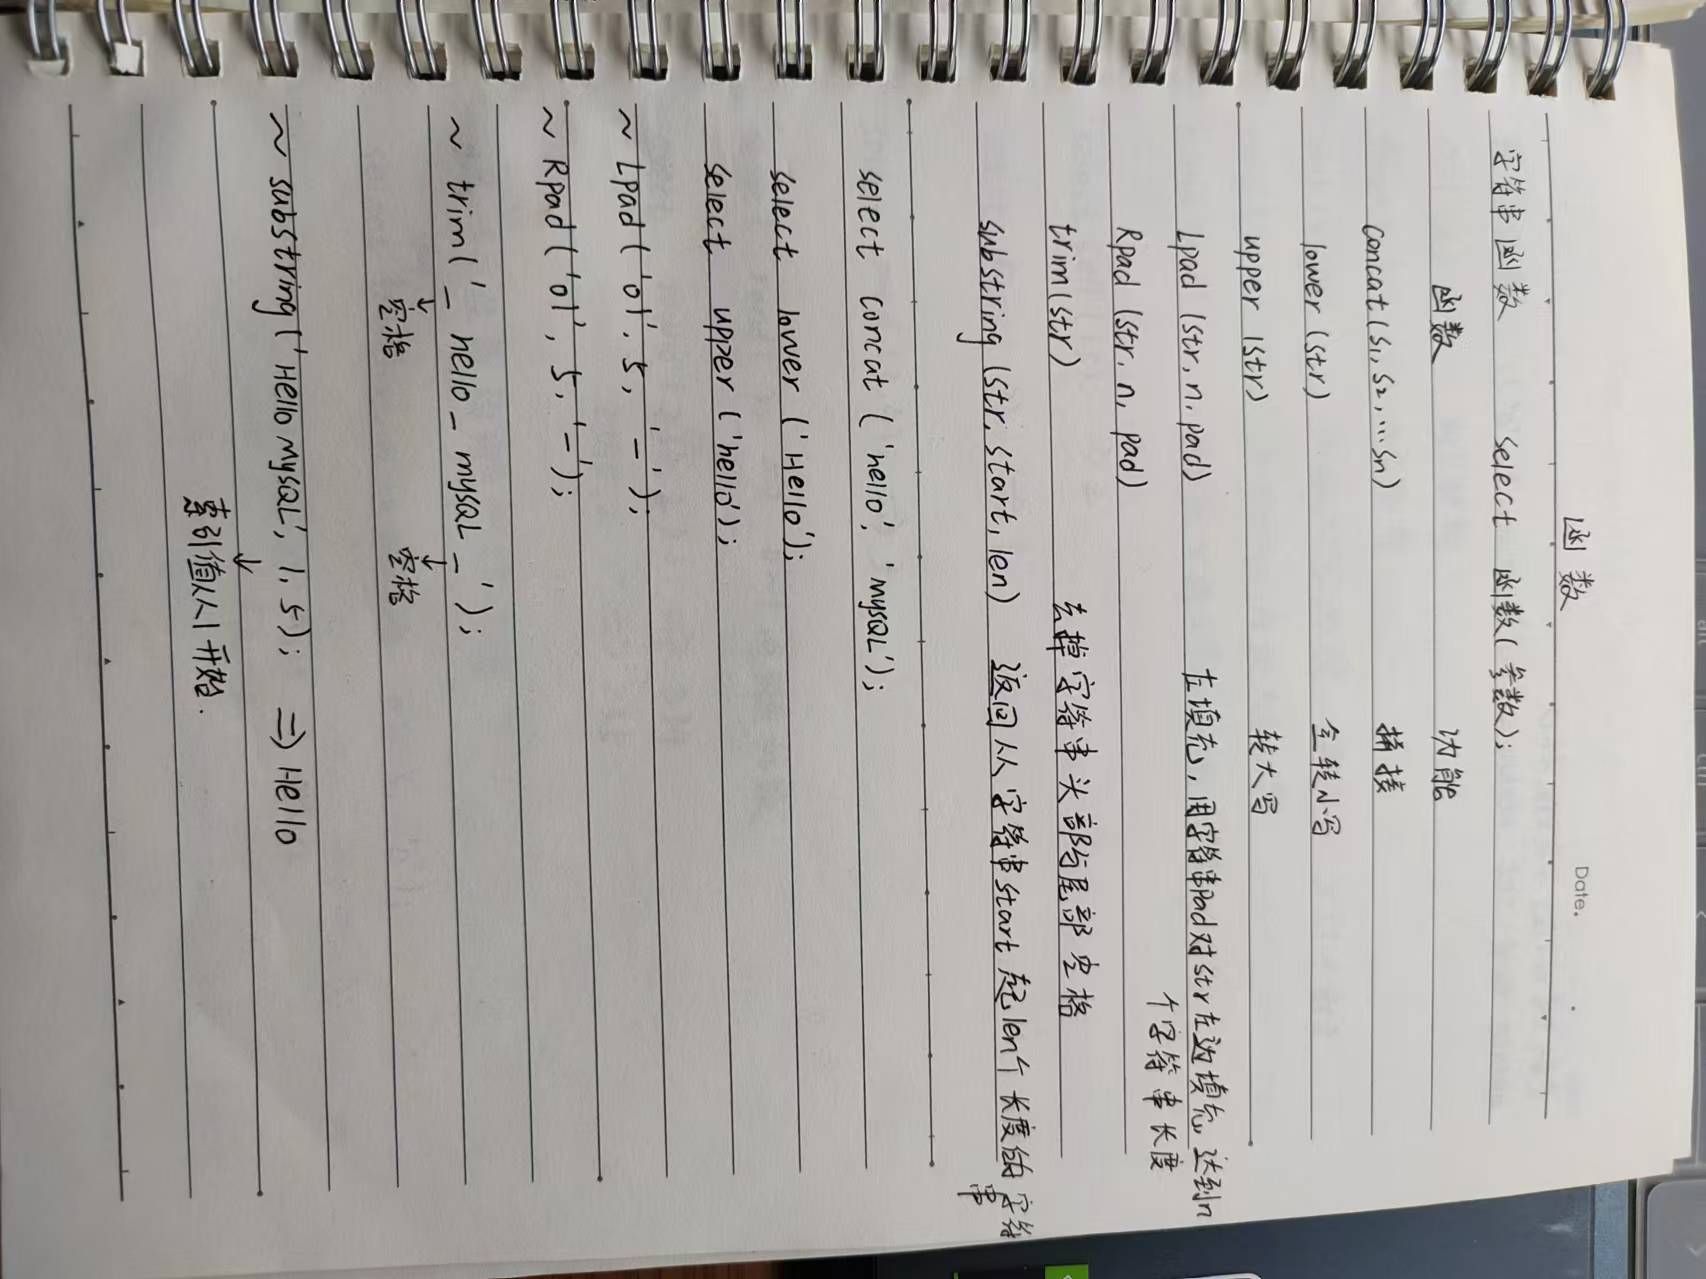 函数
Date.
字符串函数 select 函数(参数);
函数 功能
concat(S1, S2, ...Sn) 拼接
lower (str) 全转小写
upper (str) 转大写
Lpad (str, n, pad) 左填充, 用字符串pad对str左边填充, 达到n
个字符串长度
Rpad (str, n, pad)
trim(str) 去掉字符串头部与尾部空格
substring (str, start, len) 返回从字符串start起len个长度的字符
串
select concat ('hello', 'MySQL');
select lower ('Hello');
select upper ('hello');
~ Lpad ('01', 5, '-');
~ Rpad ('01', 5, '-');
~ trim('_ hello _ mySQL _');
↓ ↓
空格 空格
~ substring('Hello MySQL', 1, 5); => Hello
↓
索引值从1开始.